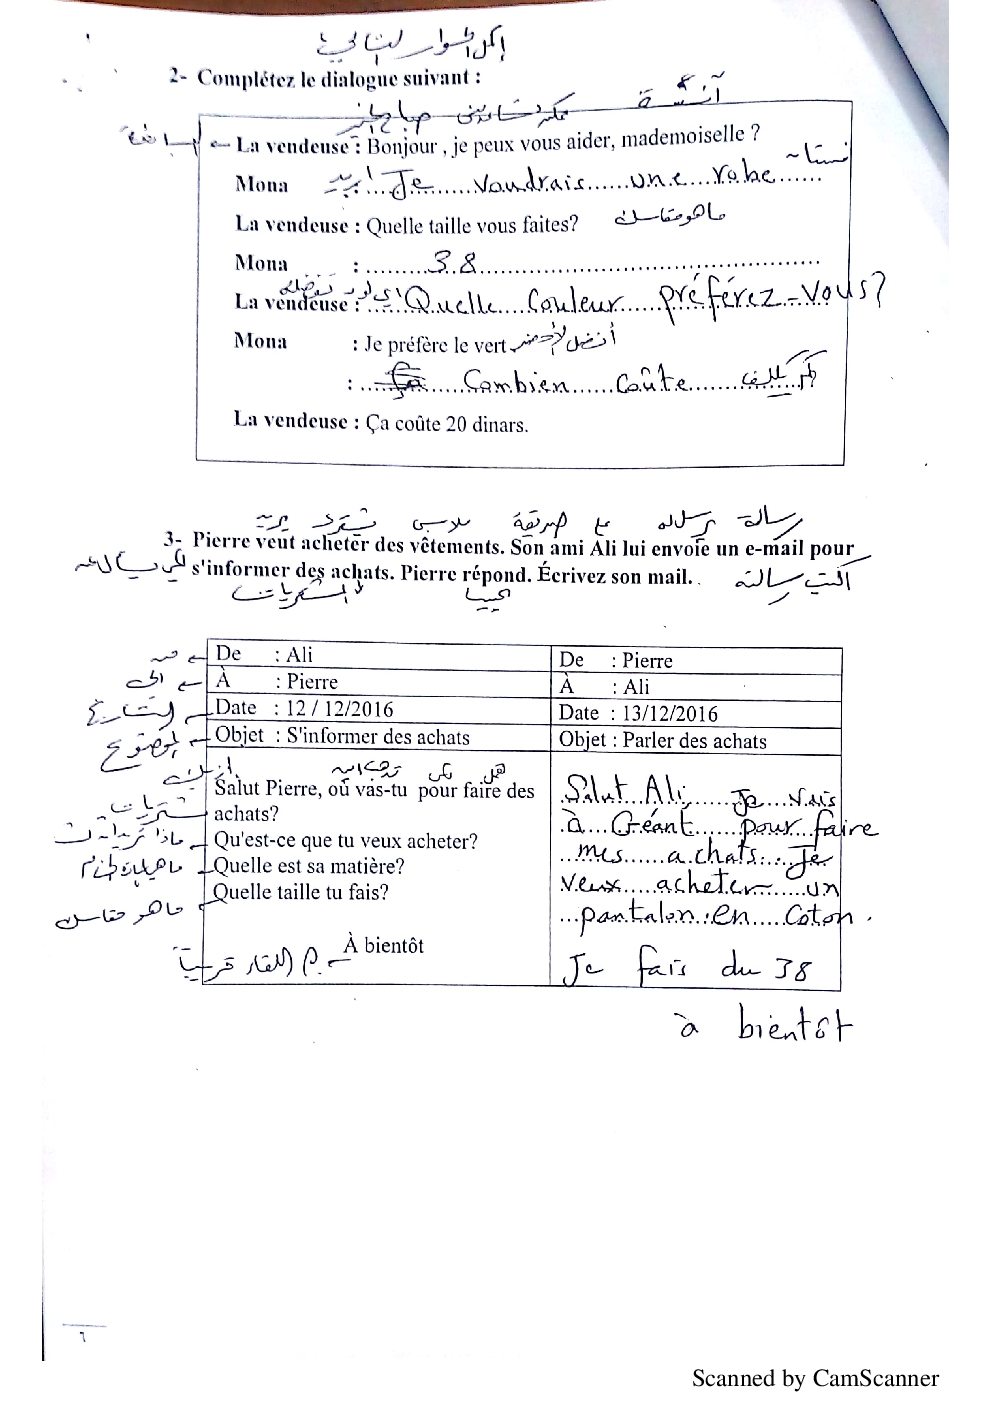 أكمل الحوار التالي:
2- Complétez le dialogue suivant :
آنسة
ممكن تساعدين صباح الخير
البائعة ← La vendeuse : Bonjour , je peux vous aider, mademoiselle ?
فستان
Mona أريد Je voudrais une robe
La vendeuse : Quelle taille vous faites? ما هو مقاسك
Mona : 38
La vendeuse : أي لون تفضل Quelle couleur préférez-vous?
Mona : Je préfère le vert أفضل الأخضر
: Combien coûte كم يكلف
La vendeuse : Ça coûte 20 dinars.
رسالة يرسل له علي صديقه ملابس شراء يريد
3- Pierre veut acheter des vêtements. Son ami Ali lui envoie un e-mail pour
s'informer des achats. Pierre répond. Écrivez son mail.
اكتب رسالته
يجيب المشتريات
من ← De : Ali
الى ← À : Pierre
التاريخ ← Date : 12 / 12/2016
الموضوع ← Objet : S'informer des achats
Salut Pierre, où vas-tu pour faire des
achats?
مشتريات
ماذا تريد أن ت ← Qu'est-ce que tu veux acheter?
Quelle est sa matière?
Quelle taille tu fais?
ما هو مقاسك
À bientôt
اللقاء قريبا
De : Pierre
À : Ali
Date : 13/12/2016
Objet : Parler des achats
Salut Ali, Je vais
à Géant pour faire
mes achats. Je
veux acheter un
pantalon en coton.
Je fais du 38
à bientôt
٦
Scanned by CamScanner